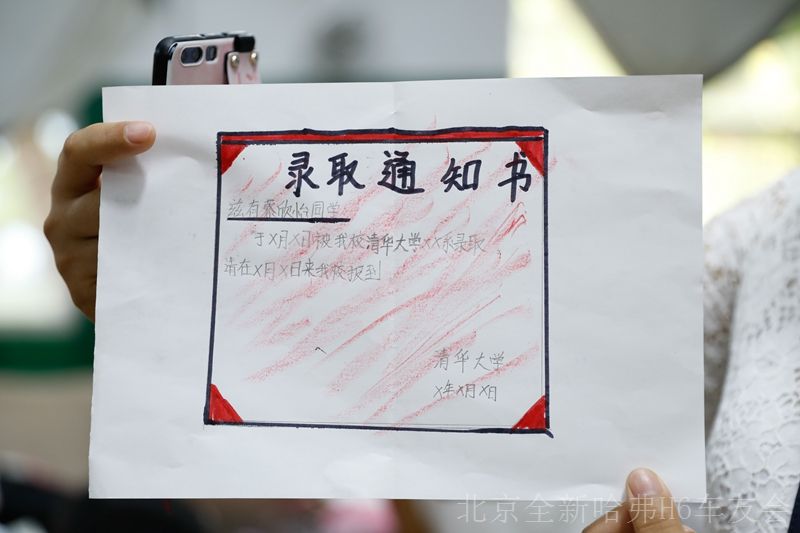 录取通知书
兹有蔡欣怡同学
于X月X日被我校清华大学XX系录取
请在X月X日来我校报到
清华大学
X年X月X日
北京全新哈弗H6车友会